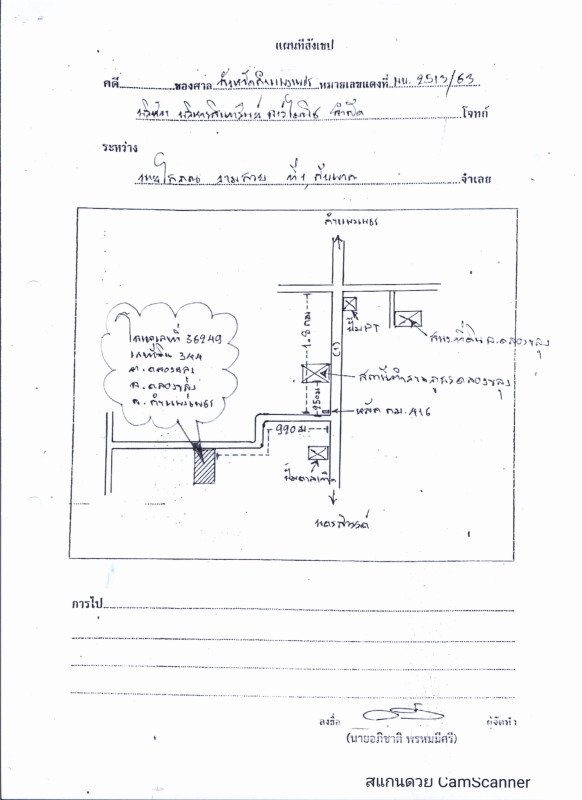 แผนที่สังเขป
คดี ของศาล จังหวัดกำแพงเพชร หมายเลขแดงที่ ผบ. 2513/63
บริษัท บริหารสินทรัพย์ จำกัด โจทก์
ระหว่าง
ที่ 1 จำเลย
กำแพงเพชร
โฉนดเลขที่ 36249
เลขที่ดิน 344
ต. คลองขลุง
อ. คลองขลุง
จ. กำแพงเพชร
1.8 กม
(1)
ปั๊ม PT
สนง.ที่ดิน อ.คลองขลุง
สถานีตำรวจภูธรคลองขลุง
950 ม
หลัก กม. 416
990 ม.
นครสวรรค์
การไป
ลงชื่อ ผู้จัดทำ
(นายอภิชาติ พรหมมีศรี)
สแกนด้วย CamScanner